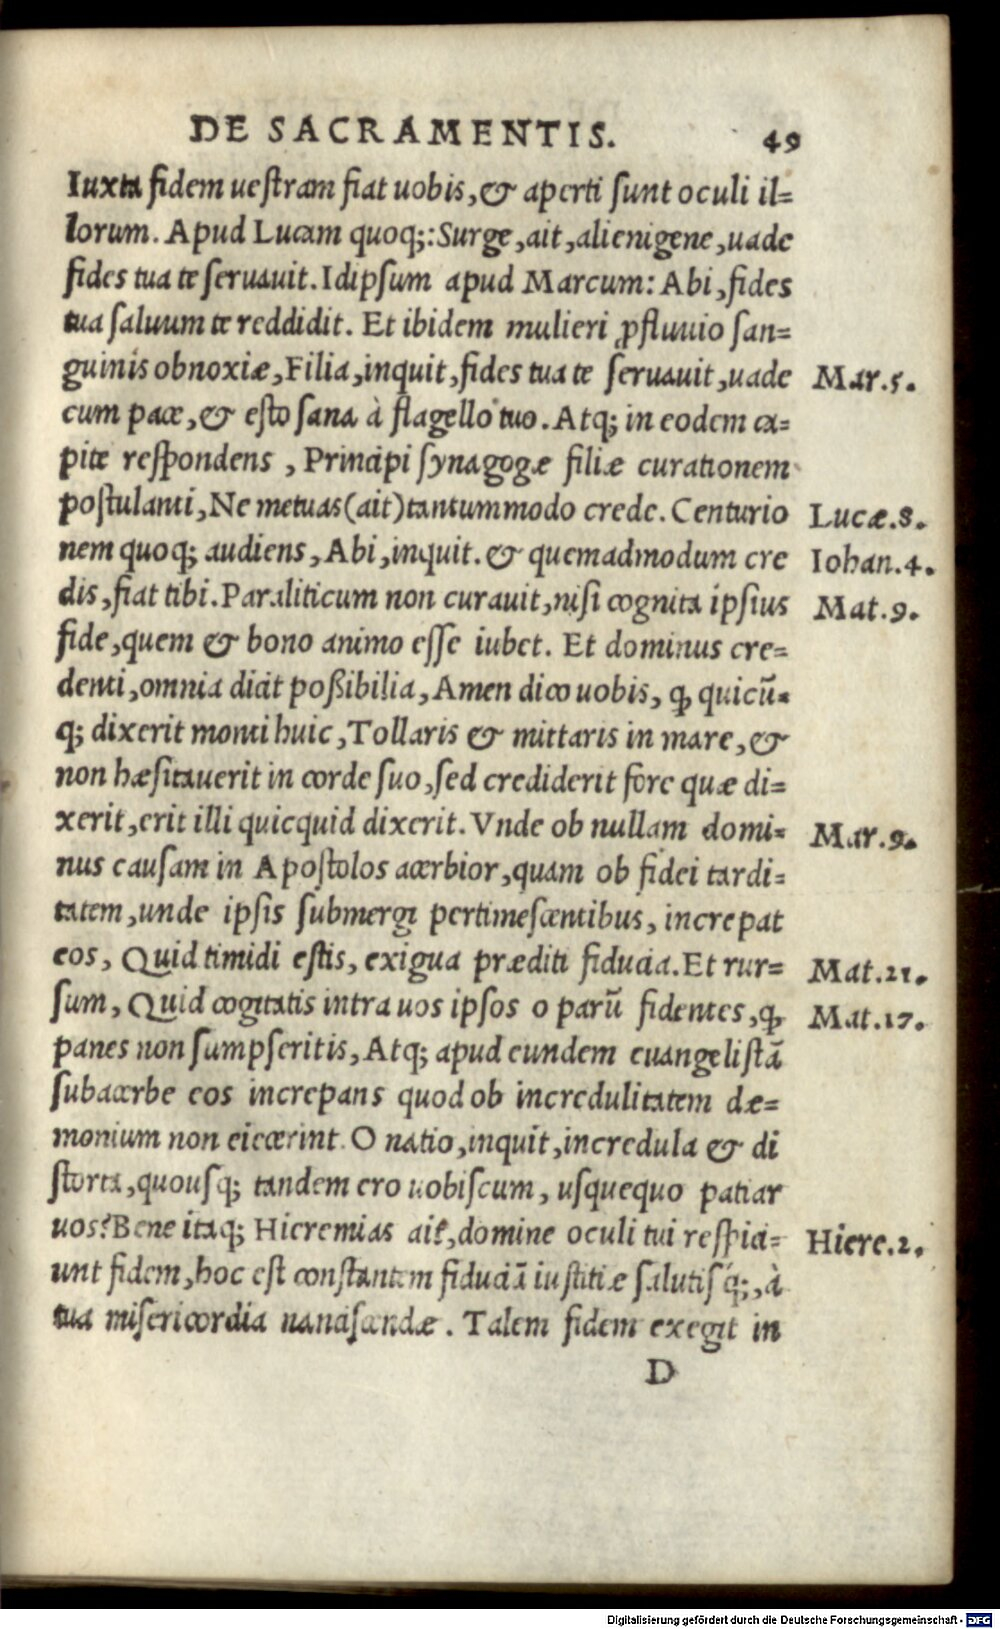 DE SACRAMENTIS. 49
Iuxta fidem uestram fiat uobis, & aperti sunt oculi il=
lorum. Apud Lucam quoq;: Surge, ait, alienigene, uade
fides tua te seruauit. Idipsum apud Marcum: Abi, fides
tua saluum te reddidit. Et ibidem mulieri ꝓfluuio san=
guinis obnoxiæ, Filia, inquit, fides tua te seruauit, uade Mar.5.
cum pace, & esto sana à flagello tuo. Atq; in eodem ca=
pite respondens, Principi synagogæ filiæ curationem
postulanti, Ne metuas (ait) tantummodo crede. Centurio Lucæ.8.
nem quoq; audiens, Abi, inquit. & quemadmodum cre Iohan.4.
dis, fiat tibi. Paraliticum non curauit, nisi cognita ipsius Mat.9.
fide, quem & bono animo esse iubet. Et dominus cre=
denti, omnia dicit poßibilia, Amen dico uobis, ꝙ quicũ=
q; dixerit monti huic, Tollaris & mittaris in mare, &
non hæsitauerit in corde suo, sed crediderit fore quæ di=
xerit, erit illi quicquid dixerit. Vnde ob nullam domi= Mar.9.
nus causam in Apostolos acerbior, quam ob fidei tardi=
tatem, unde ipsis submergi pertimescentibus, increpat
eos, Quid timidi estis, exigua præditi fiducia. Et rur= Mat.21.
sum, Quid cogitatis intra uos ipsos o parũ fidentes, ꝙ Mat.17.
panes non sumpseritis, Atq; apud eundem euangelistã
subacerbe eos increpans quod ob incredulitatem dæ=
monium non eiecerint. O natio, inquit, incredula & di
storta, quousq; tandem ero uobiscum, usquequo patiar
uos? Bene itaq; Hieremias ait, domine oculi tui respici= Hiere.2.
unt fidem, hoc est constantem fiduciã iustitiæ salutisq́;, à
tua misericordia nanciscandæ. Talem fidem exegit in
D
Digitalisierung gefördert durch die Deutsche Forschungsgemeinschaft - DFG